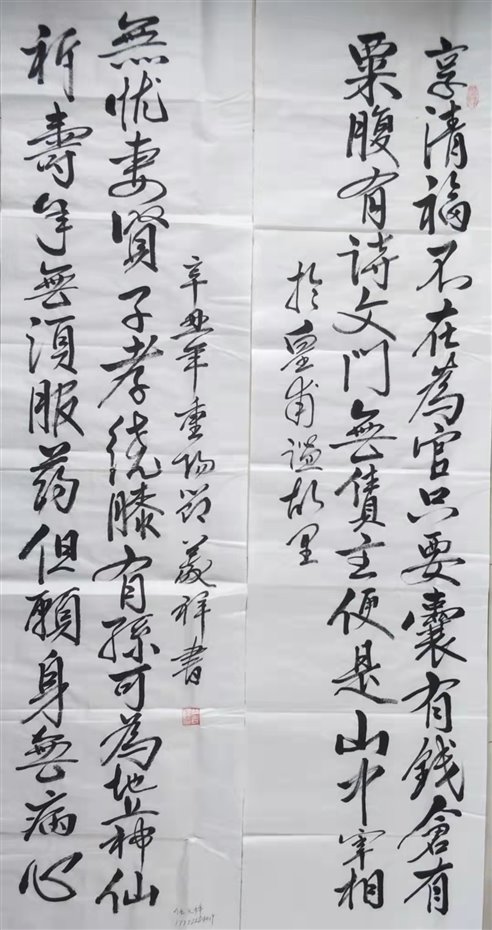 享清福不在為官只要囊有钱倉有
粟腹有诗文門無債主便是山中宰相
於皇甫謐故里
祈壽年無須服药但願身無病心
無忧妻賢子孝绕膝有孫可為地上神仙
辛丑年重陽節義祥書